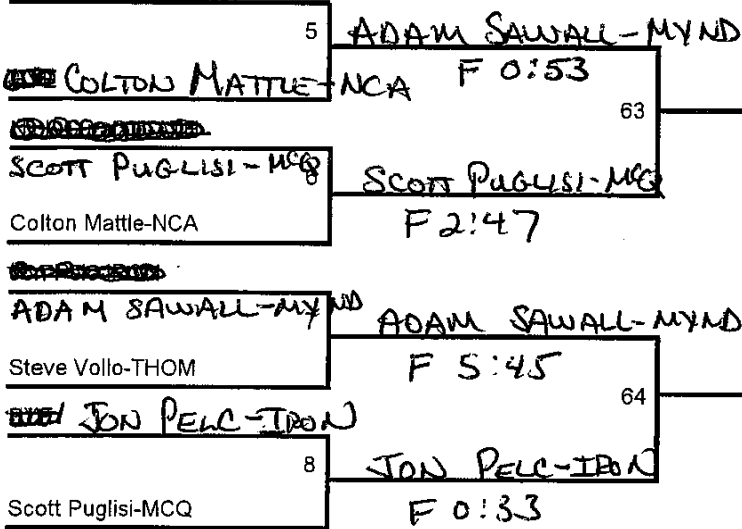 5
ADAM SAWALL-MYND
COLTON MATTLE-NCA
F 0:53
63
SCOTT PUGLISI-MCQ
SCOTT PUGLISI-MCQ
Colton Mattle-NCA
F 2:47
ADAM SAWALL-MYND
ADAM SAWALL-MYND
Steve Vollo-THOM
F 5:45
64
JON PELC-IRON
8
JON PELC-IRON
Scott Puglisi-MCQ
F 0:33